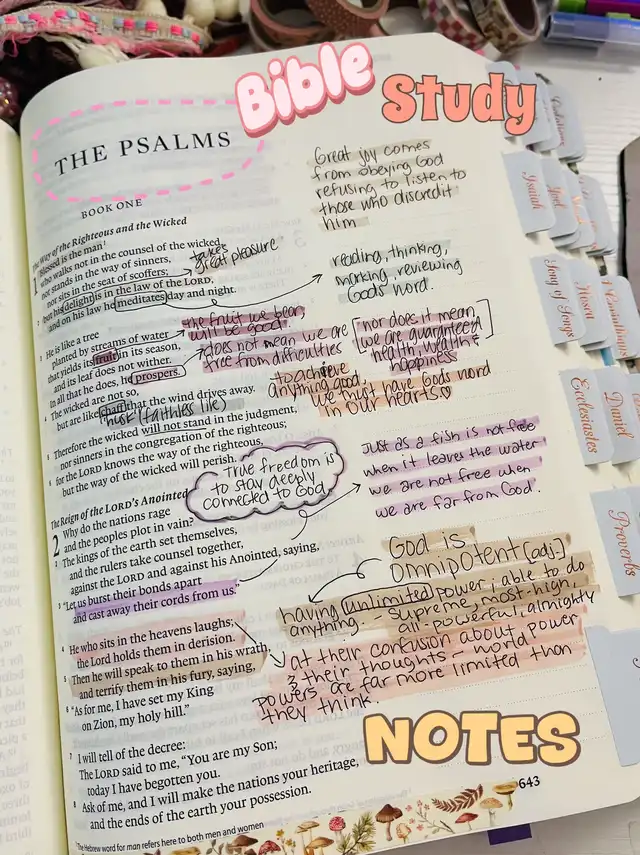 Bible Study
THE PSALMS
BOOK ONE
Great joy comes
from obeying God
refusing to listen to
those who discredit
him
The Way of the Righteous and the Wicked
1 Blessed is the man¹
who walks not in the counsel of the wicked,
nor stands in the way of sinners,
nor sits in the seat of scoffers;
takes
great pleasure
2 but his delight is in the law of the LORD,
and on his law he meditates day and night.
reading, thinking,
marking, reviewing
Gods word.
3 He is like a tree
planted by streams of water
that yields its fruit in its season,
and its leaf does not wither.
In all that he does, he prospers.
the fruit we bear,
will be good.
does not mean we are
free from difficulties
[nor does it mean
we are guaranteed
health, wealth &
happiness]
4 The wicked are not so,
but are like chaff that the wind drives away.
husk (faithless life)
to achieve
anything good,
we must have Gods word
in our hearts♡
5 Therefore the wicked will not stand in the judgment,
nor sinners in the congregation of the righteous;
6 for the LORD knows the way of the righteous,
but the way of the wicked will perish.
True freedom is
to stay deeply
connected to God
Just as a fish is not free
when it leaves the water
we are not free when
we are far from God.
The Reign of the LORD's Anointed
2 Why do the nations rage
and the peoples plot in vain?
2 The kings of the earth set themselves,
and the rulers take counsel together,
against the LORD and against his Anointed, saying,
3 "Let us burst their bonds apart
and cast away their cords from us."
God is
omnipotent [adj.]
having unlimited power; able to do
anything. - supreme, most-high,
all-powerful, almighty
4 He who sits in the heavens laughs;
the Lord holds them in derision.
5 Then he will speak to them in his wrath,
and terrify them in his fury, saying,
6 "As for me, I have set my King
on Zion, my holy hill."
at their confusion about power
& their thoughts - world
powers are far more limited than
they think.
7 I will tell of the decree:
The LORD said to me, "You are my Son;
today I have begotten you.
8 Ask of me, and I will make the nations your heritage,
and the ends of the earth your possession.
NOTES
643
The Hebrew word for man refers here to both men and women
Isaiah
Joel
Song of Songs
Hosea
Ecclesiastes
Daniel
Proverbs